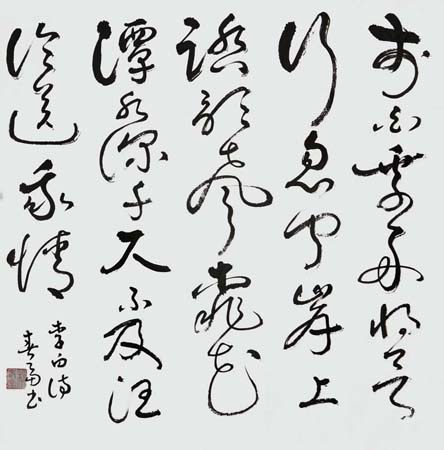 李白乘舟将欲
行忽闻岸上
踏歌声桃花
潭水深千尺不及汪
伦送我情
李白诗
春书